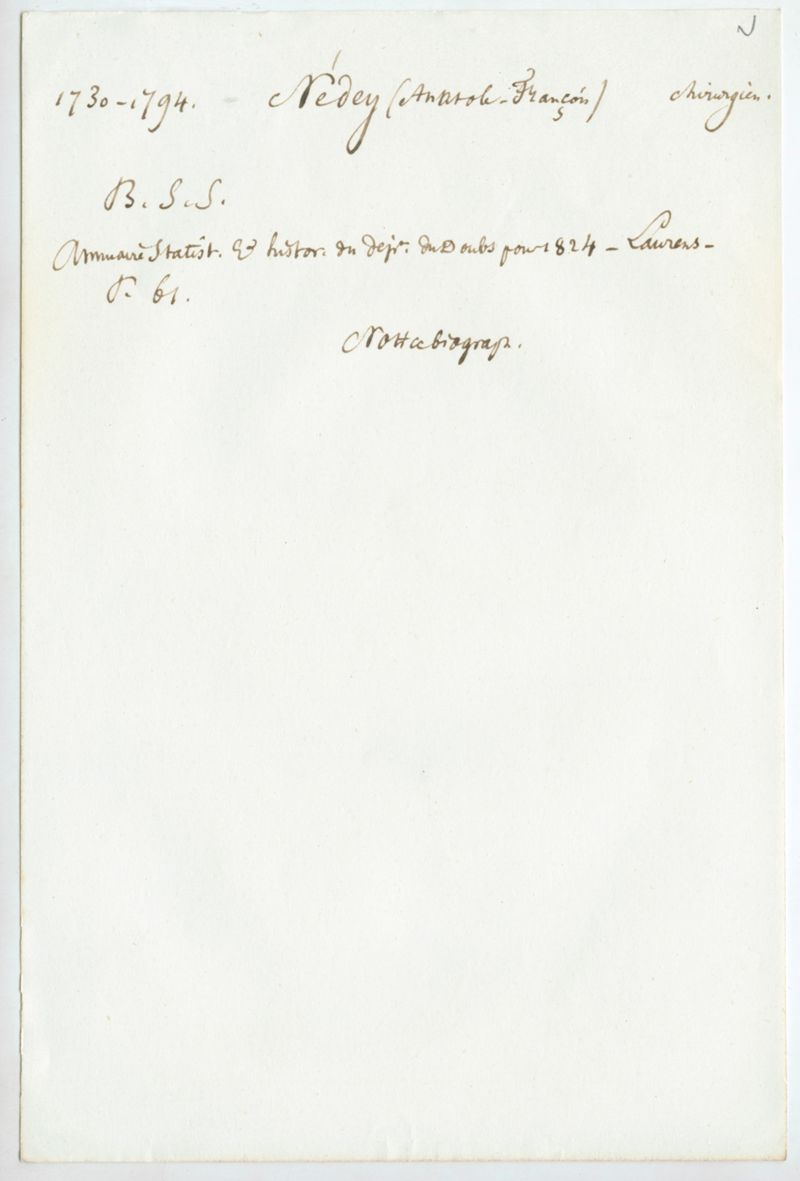 1730-1794. Nédey (Anatole-François) chirurgien.
B. S. S.
Annuaire Statist. & histor. du dépt. du Doubs pour 1824 - Laurens -
P. 61.
Notice biograph.